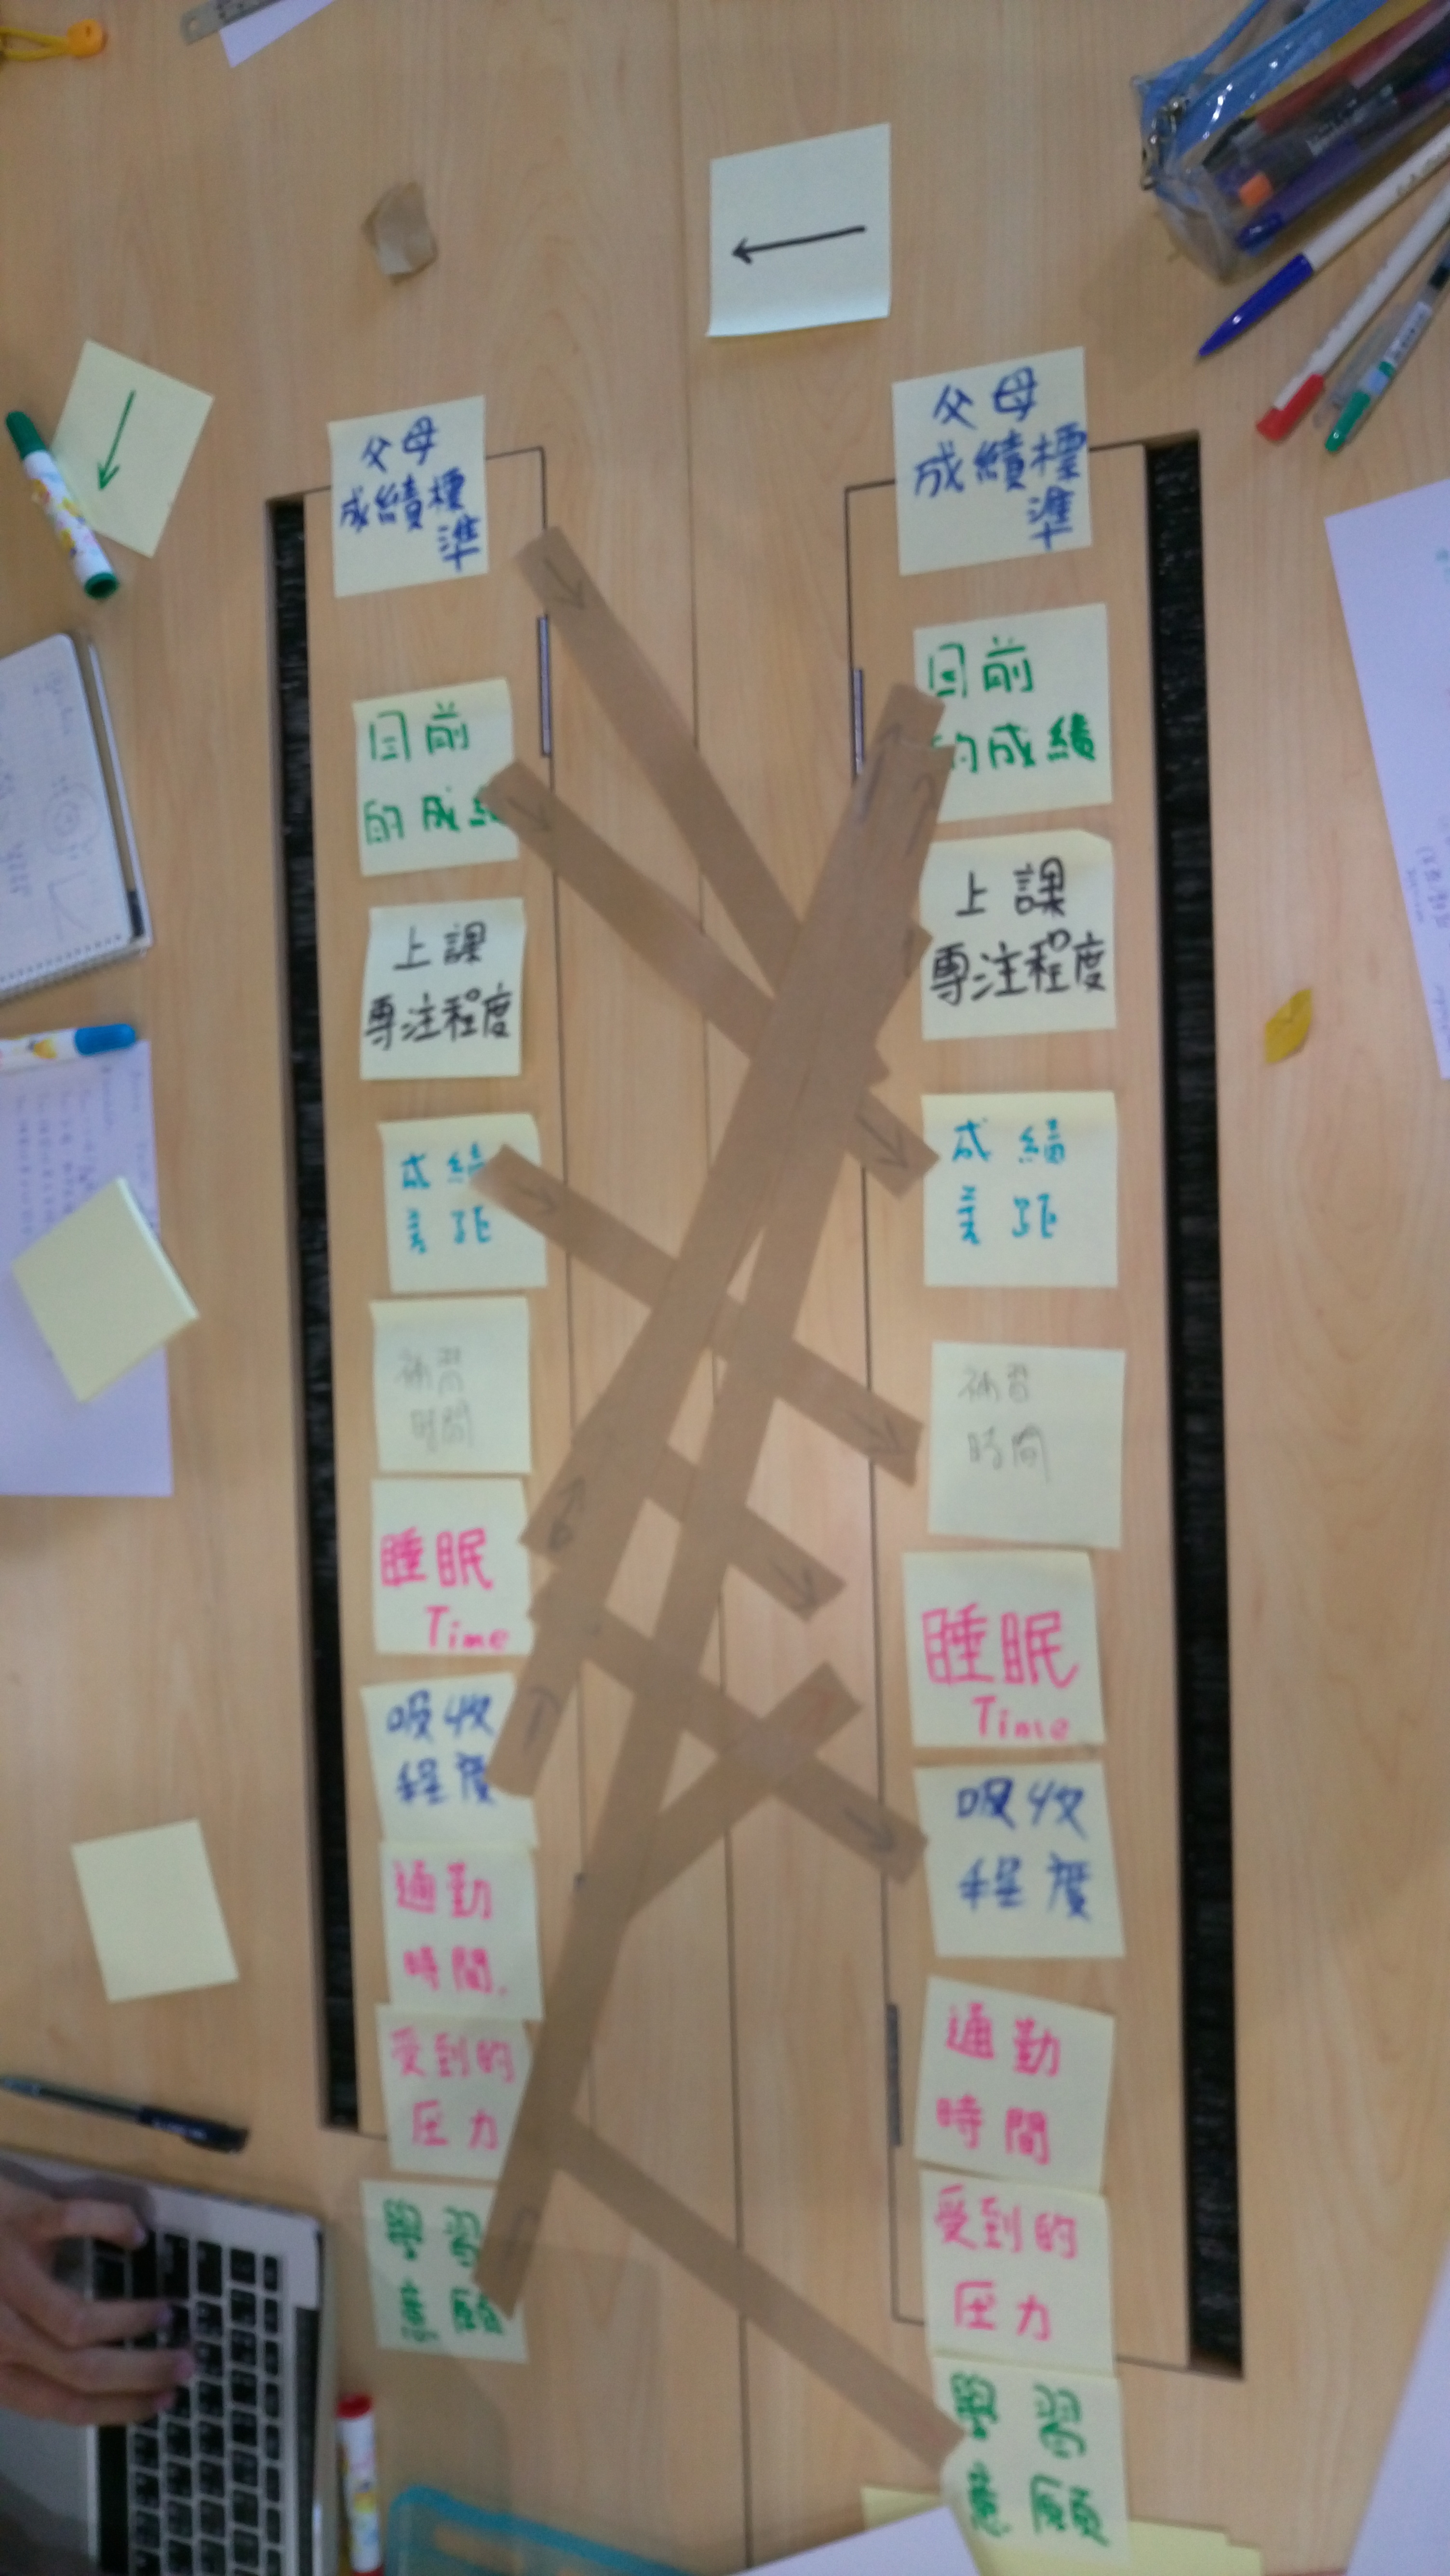 父母
成績標
準
目前
的成績
上課
專注程度
成績
差距
補習
時間
睡眠
Time
吸收
程度
通勤
時間.
受到的
壓力
學習
意願
父母
成績標
準
目前
的成績
上課
專注程度
成績
差距
補習
時間
睡眠
Time
吸收
程度
通勤
時間
受到的
壓力
學習
意願